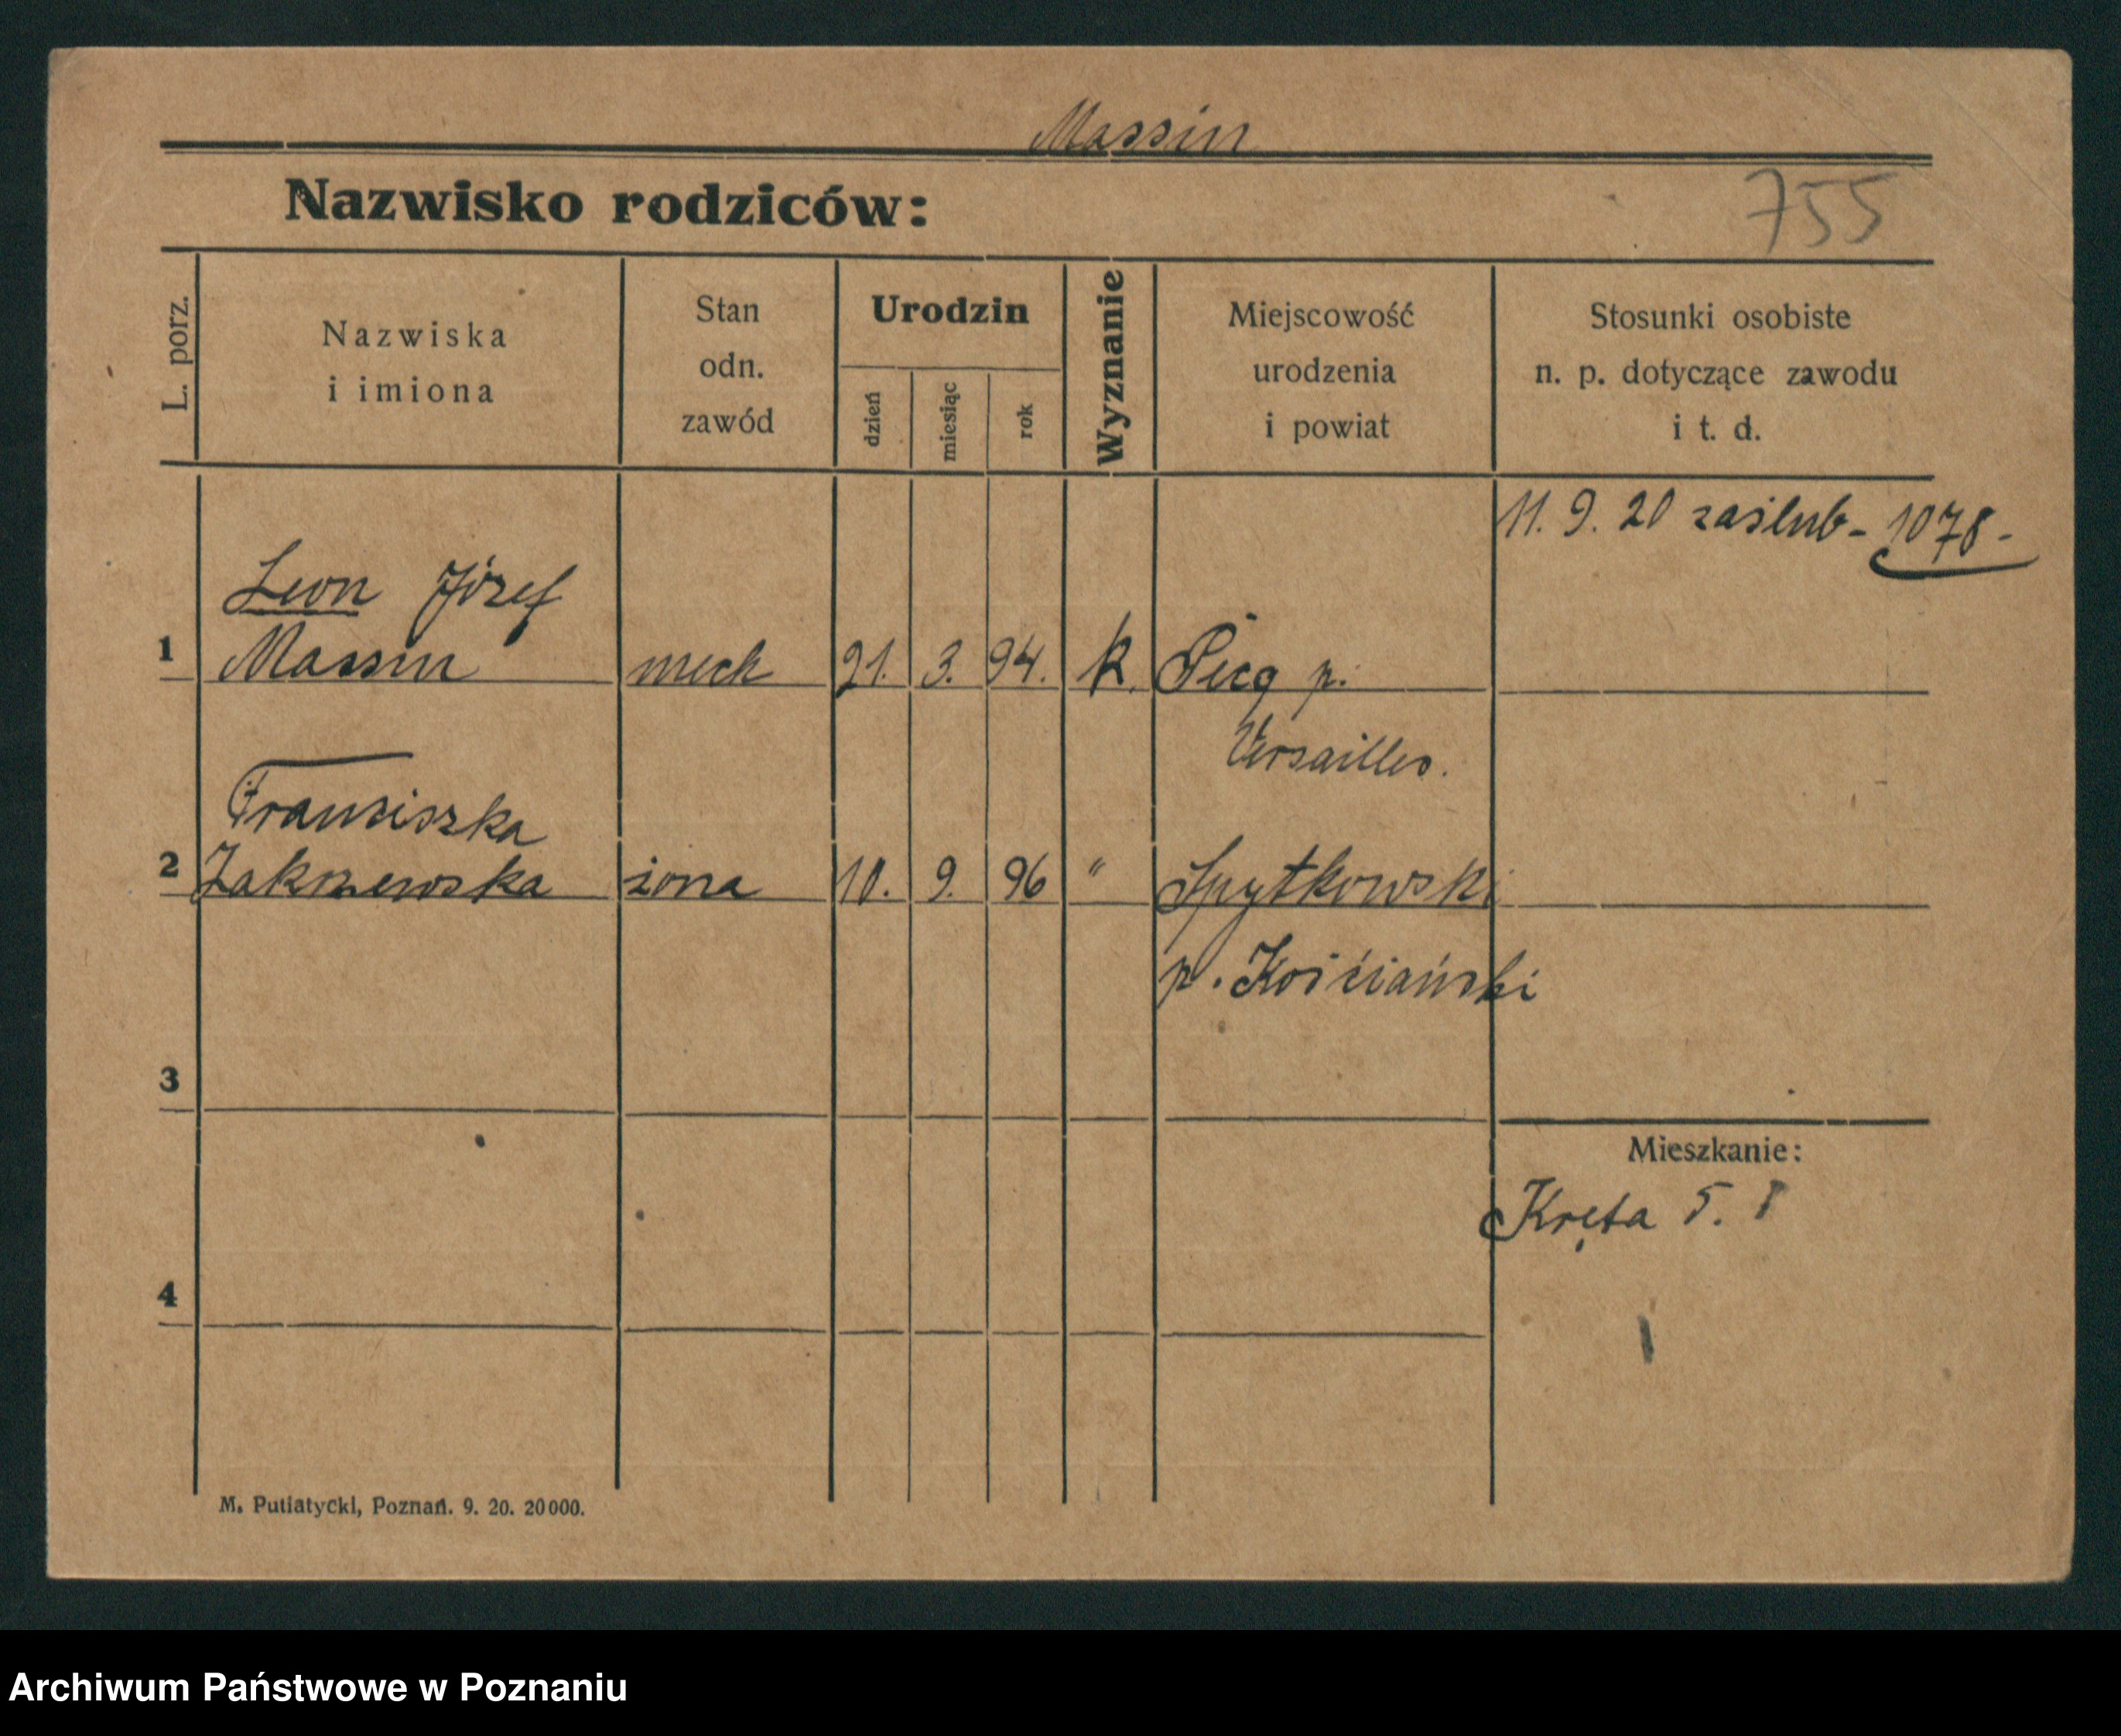 Massin
Nazwisko rodziców:
755
L. porz.
Nazwiska
i imiona
Stan
odn.
zawód
Urodzin
dzień
miesiąc
rok
Wyznanie
Miejscowość
urodzenia
i powiat
Stosunki osobiste
n. p. dotyczące zawodu
i t. d.
11. 9. 20 zaślub - 1078 -
Leon Józef
1 Massin mech 21. 3. 94. k. Pecq p.
Versailles.
Franciszka
2 Zakrzewska żona 10. 9. 96 " Spytkowski
p. Kościański
3
Mieszkanie:
Kręta 5. I
4
M. Putiatycki, Poznań. 9. 20. 20000.
Archiwum Państwowe w Poznaniu